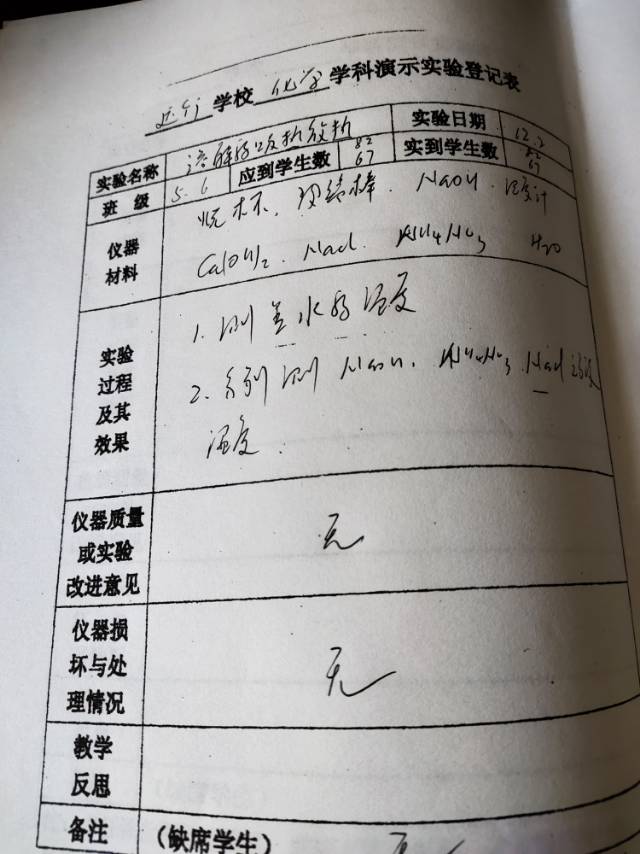 学校 化学 学科演示实验登记表
实验名称 溶解的吸热放热 实验日期 12.2
班 级 5.6 应到学生数 82 67 实到学生数 82 67
仪器 材料 烧杯、玻璃棒、NaOH、温度计
Ca(OH)2、NaCl、NH4NO3 H2O
实验 过程 及其 效果
1. 测 水的温度
2. 分别测NaOH、NH4NO3、NaCl溶液
温度.
仪器质量 或实验 改进意见 无
仪器损 坏与处 理情况 无
教学 反思
备注 (缺席学生)